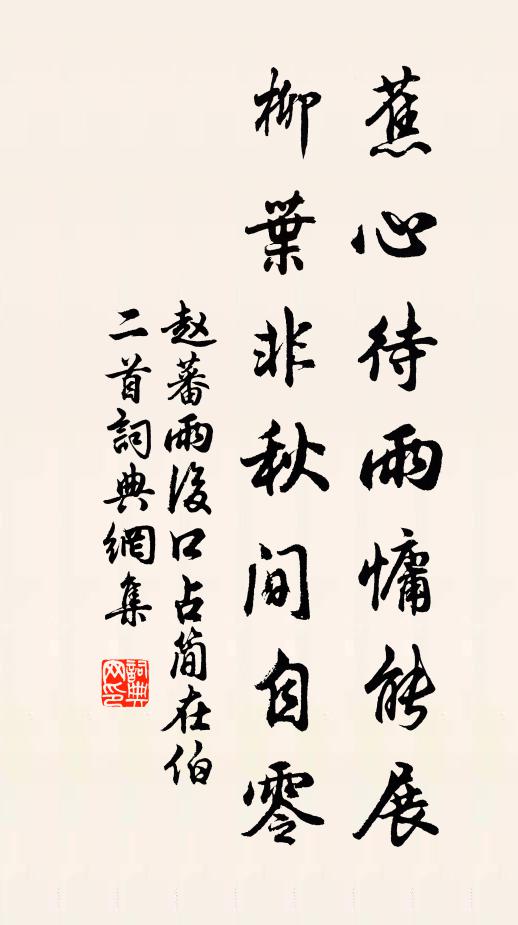 蕉心待雨慵能展
柳葉非秋間自零
赵蕃雨後口占简在伯
二首詞典網集
詞典网印